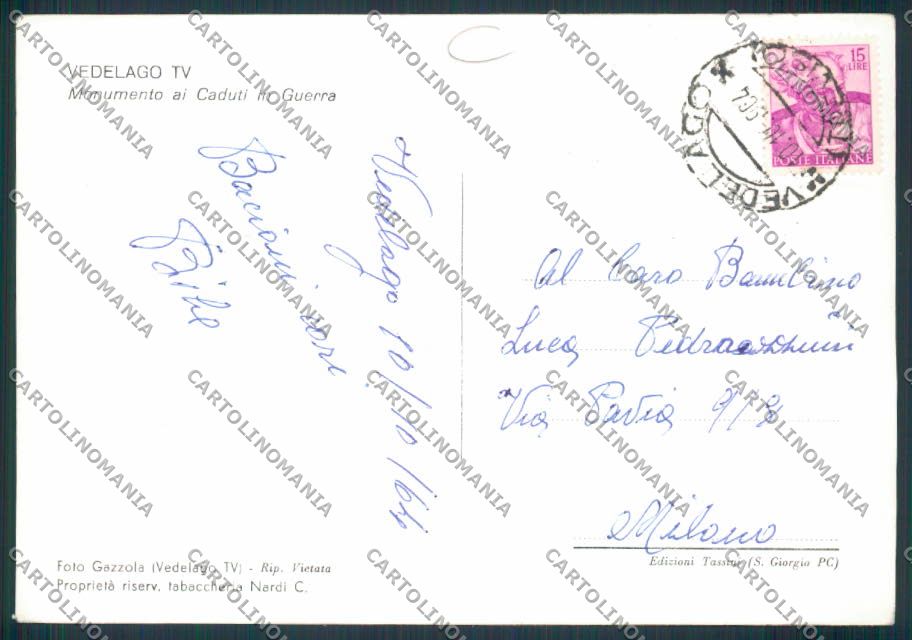 VEDELAGO TV
Monumento ai Caduti in Guerra
Vedelago 10/10/64
Bacioni cari
15
LIRE
POSTE ITALIANE
VEDELAGO
Al Caro Bambino
Luca
Via Pavia 9/2
Milano
Foto Gazzola (Vedelago TV) - Rip. Vietata
Proprietà riserv. tabaccheria Nardi C.
Edizioni Tassini (S. Giorgio PC)
CARTOLINOMANIA